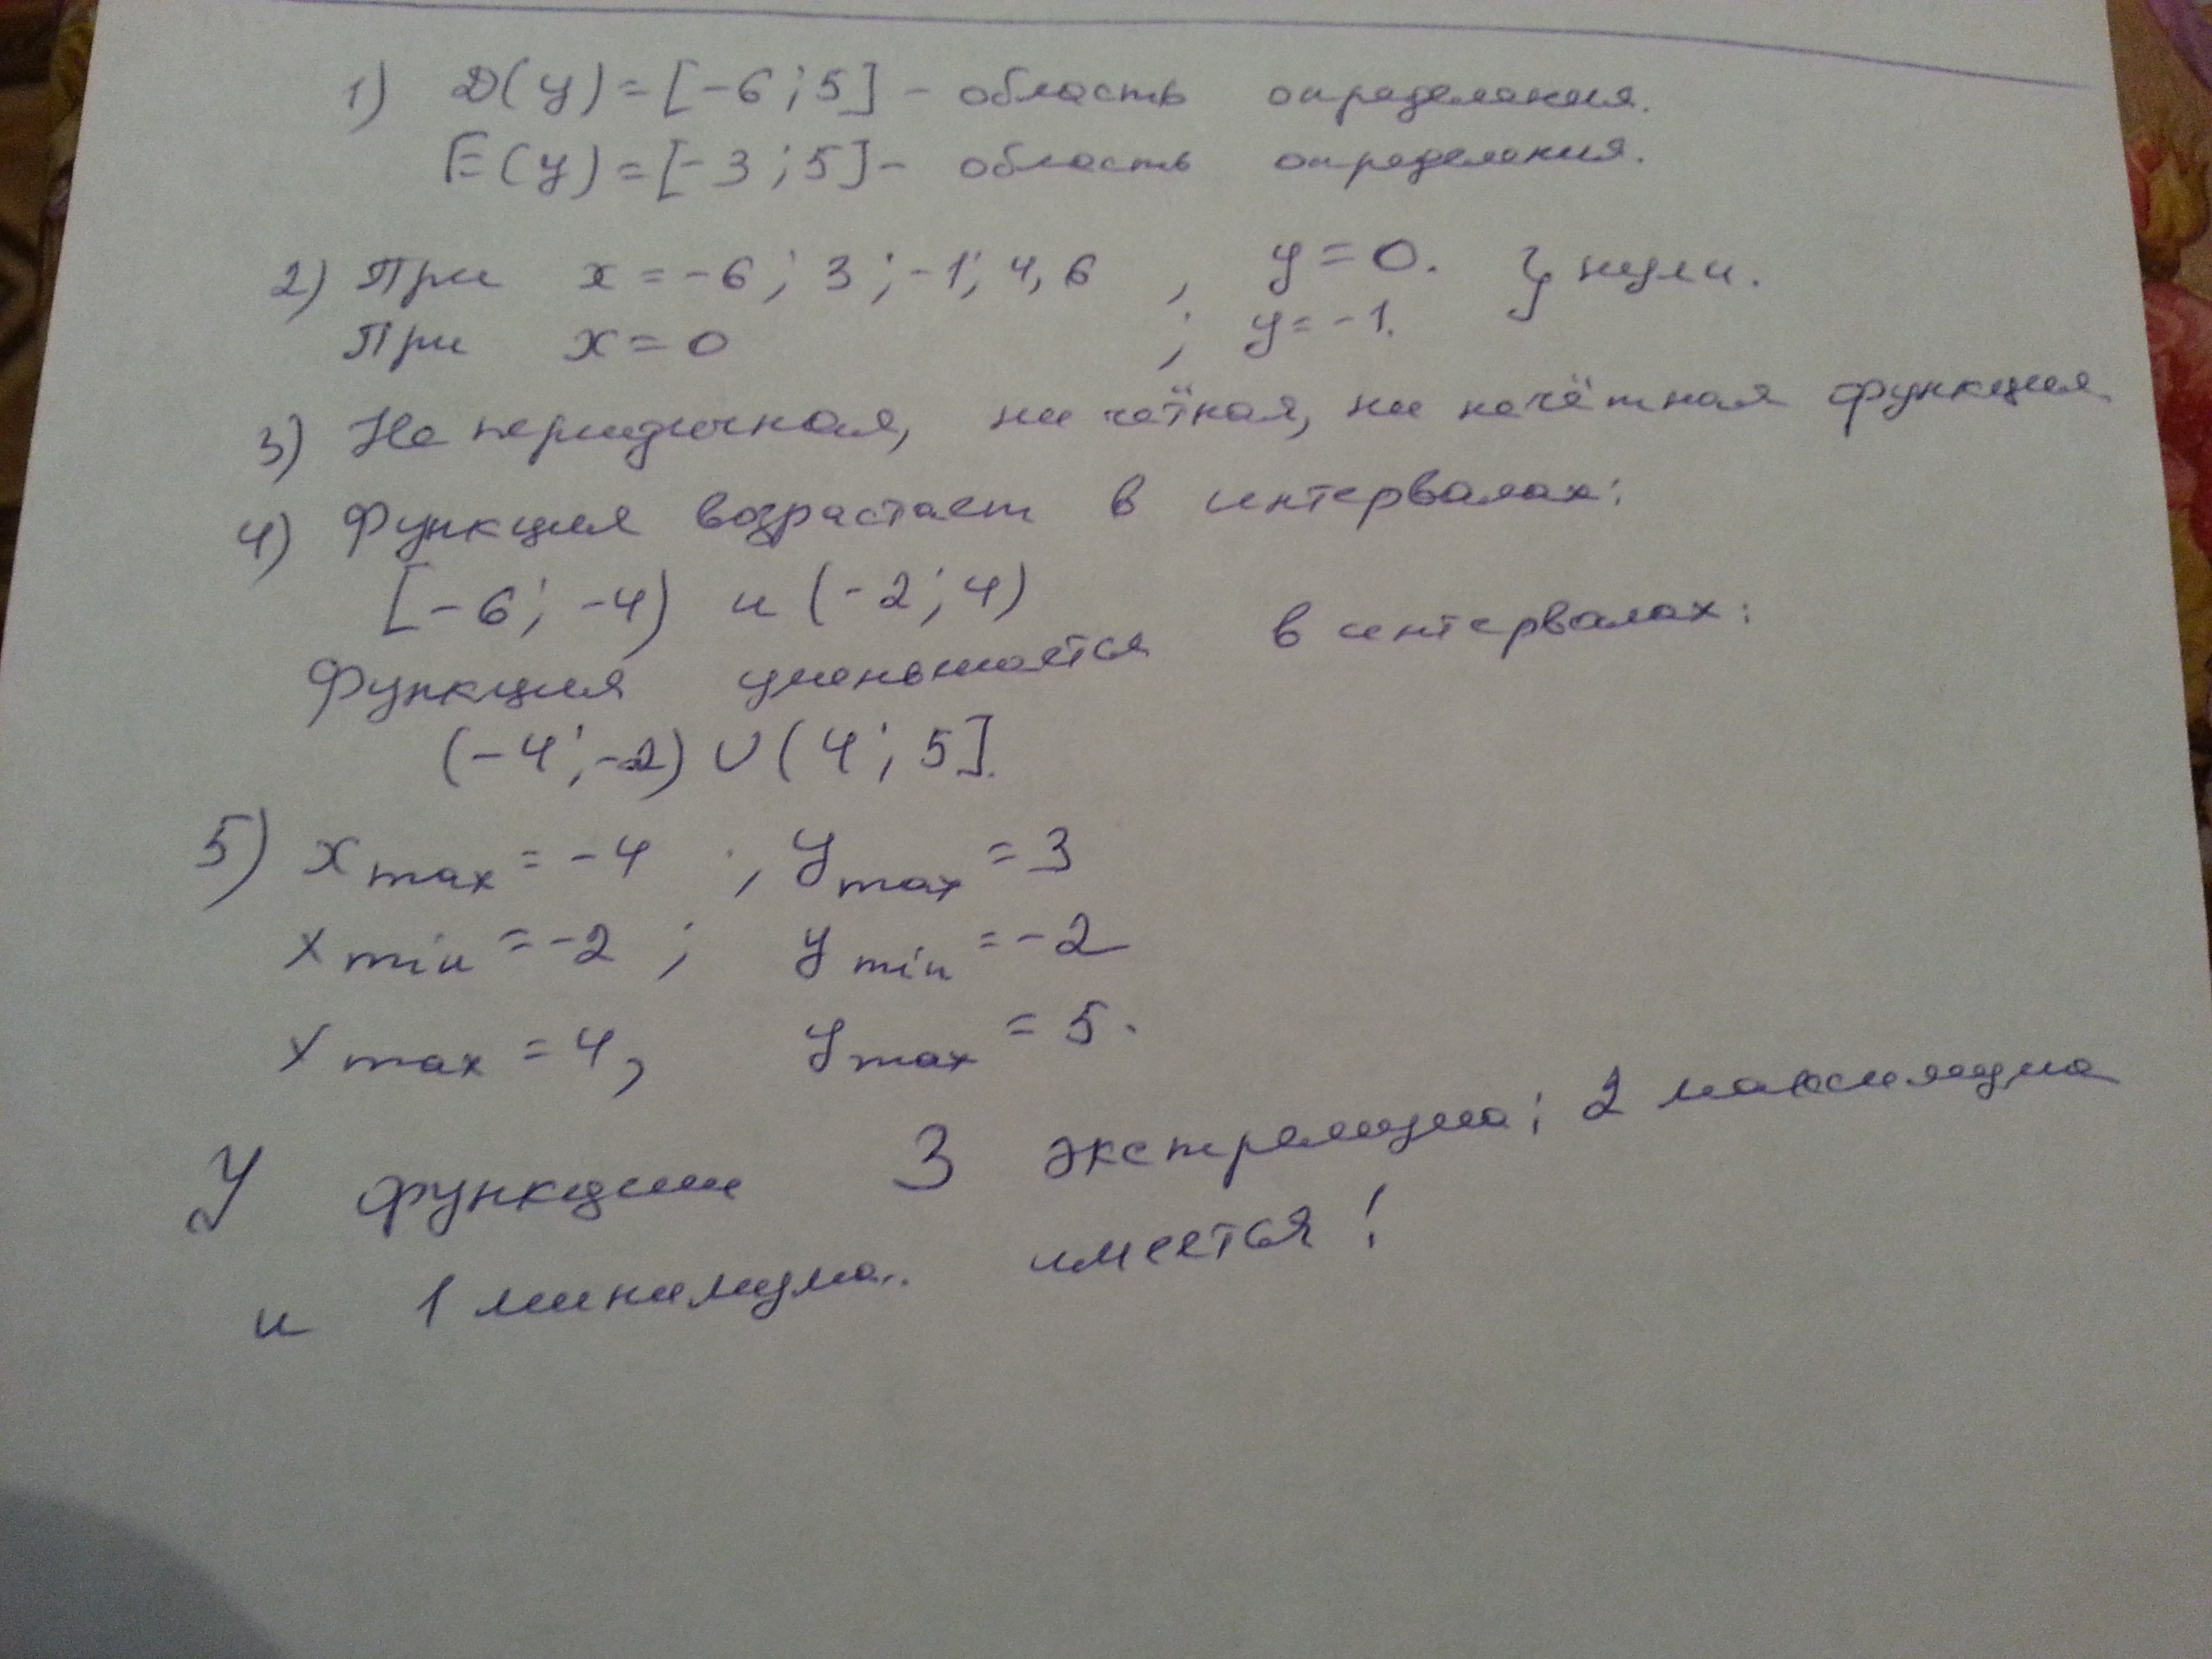 1) D(y) = [-6; 5] - область определения.
E(y) = [-3; 5] - область определения.
2) При x = -6; 3; -1; 4,6 , y = 0. } нули.
При x = 0 ; y = -1.
3) Не периодичная, ни чётная, ни нечётная функция
4) Функция возрастает в интервалах:
[-6; -4) и (-2; 4)
Функция уменьшается в интервалах:
(-4; -2) ∪ (4; 5].
5) x max = -4 ; y max = 3
x min = -2 ; y min = -2
x max = 4, y max = 5.
У функции 3 экстремума; 2 максимума
и 1 минимума.. имеется!